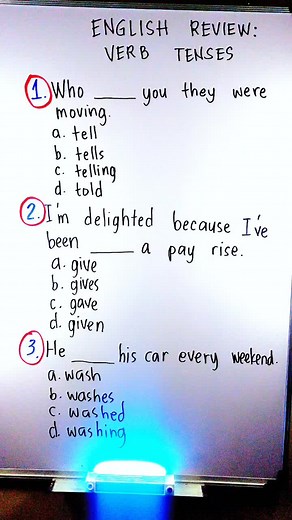 ENGLISH REVIEW:
VERB TENSES
1. Who ____ you they were
moving.
a. tell
b. tells
c. telling
d. told
2. I'm delighted because I've
been ____ a pay rise.
a. give
b. gives
c. gave
d. given
3. He ____ his car every weekend.
a. wash
b. washes
c. washed
d. washing